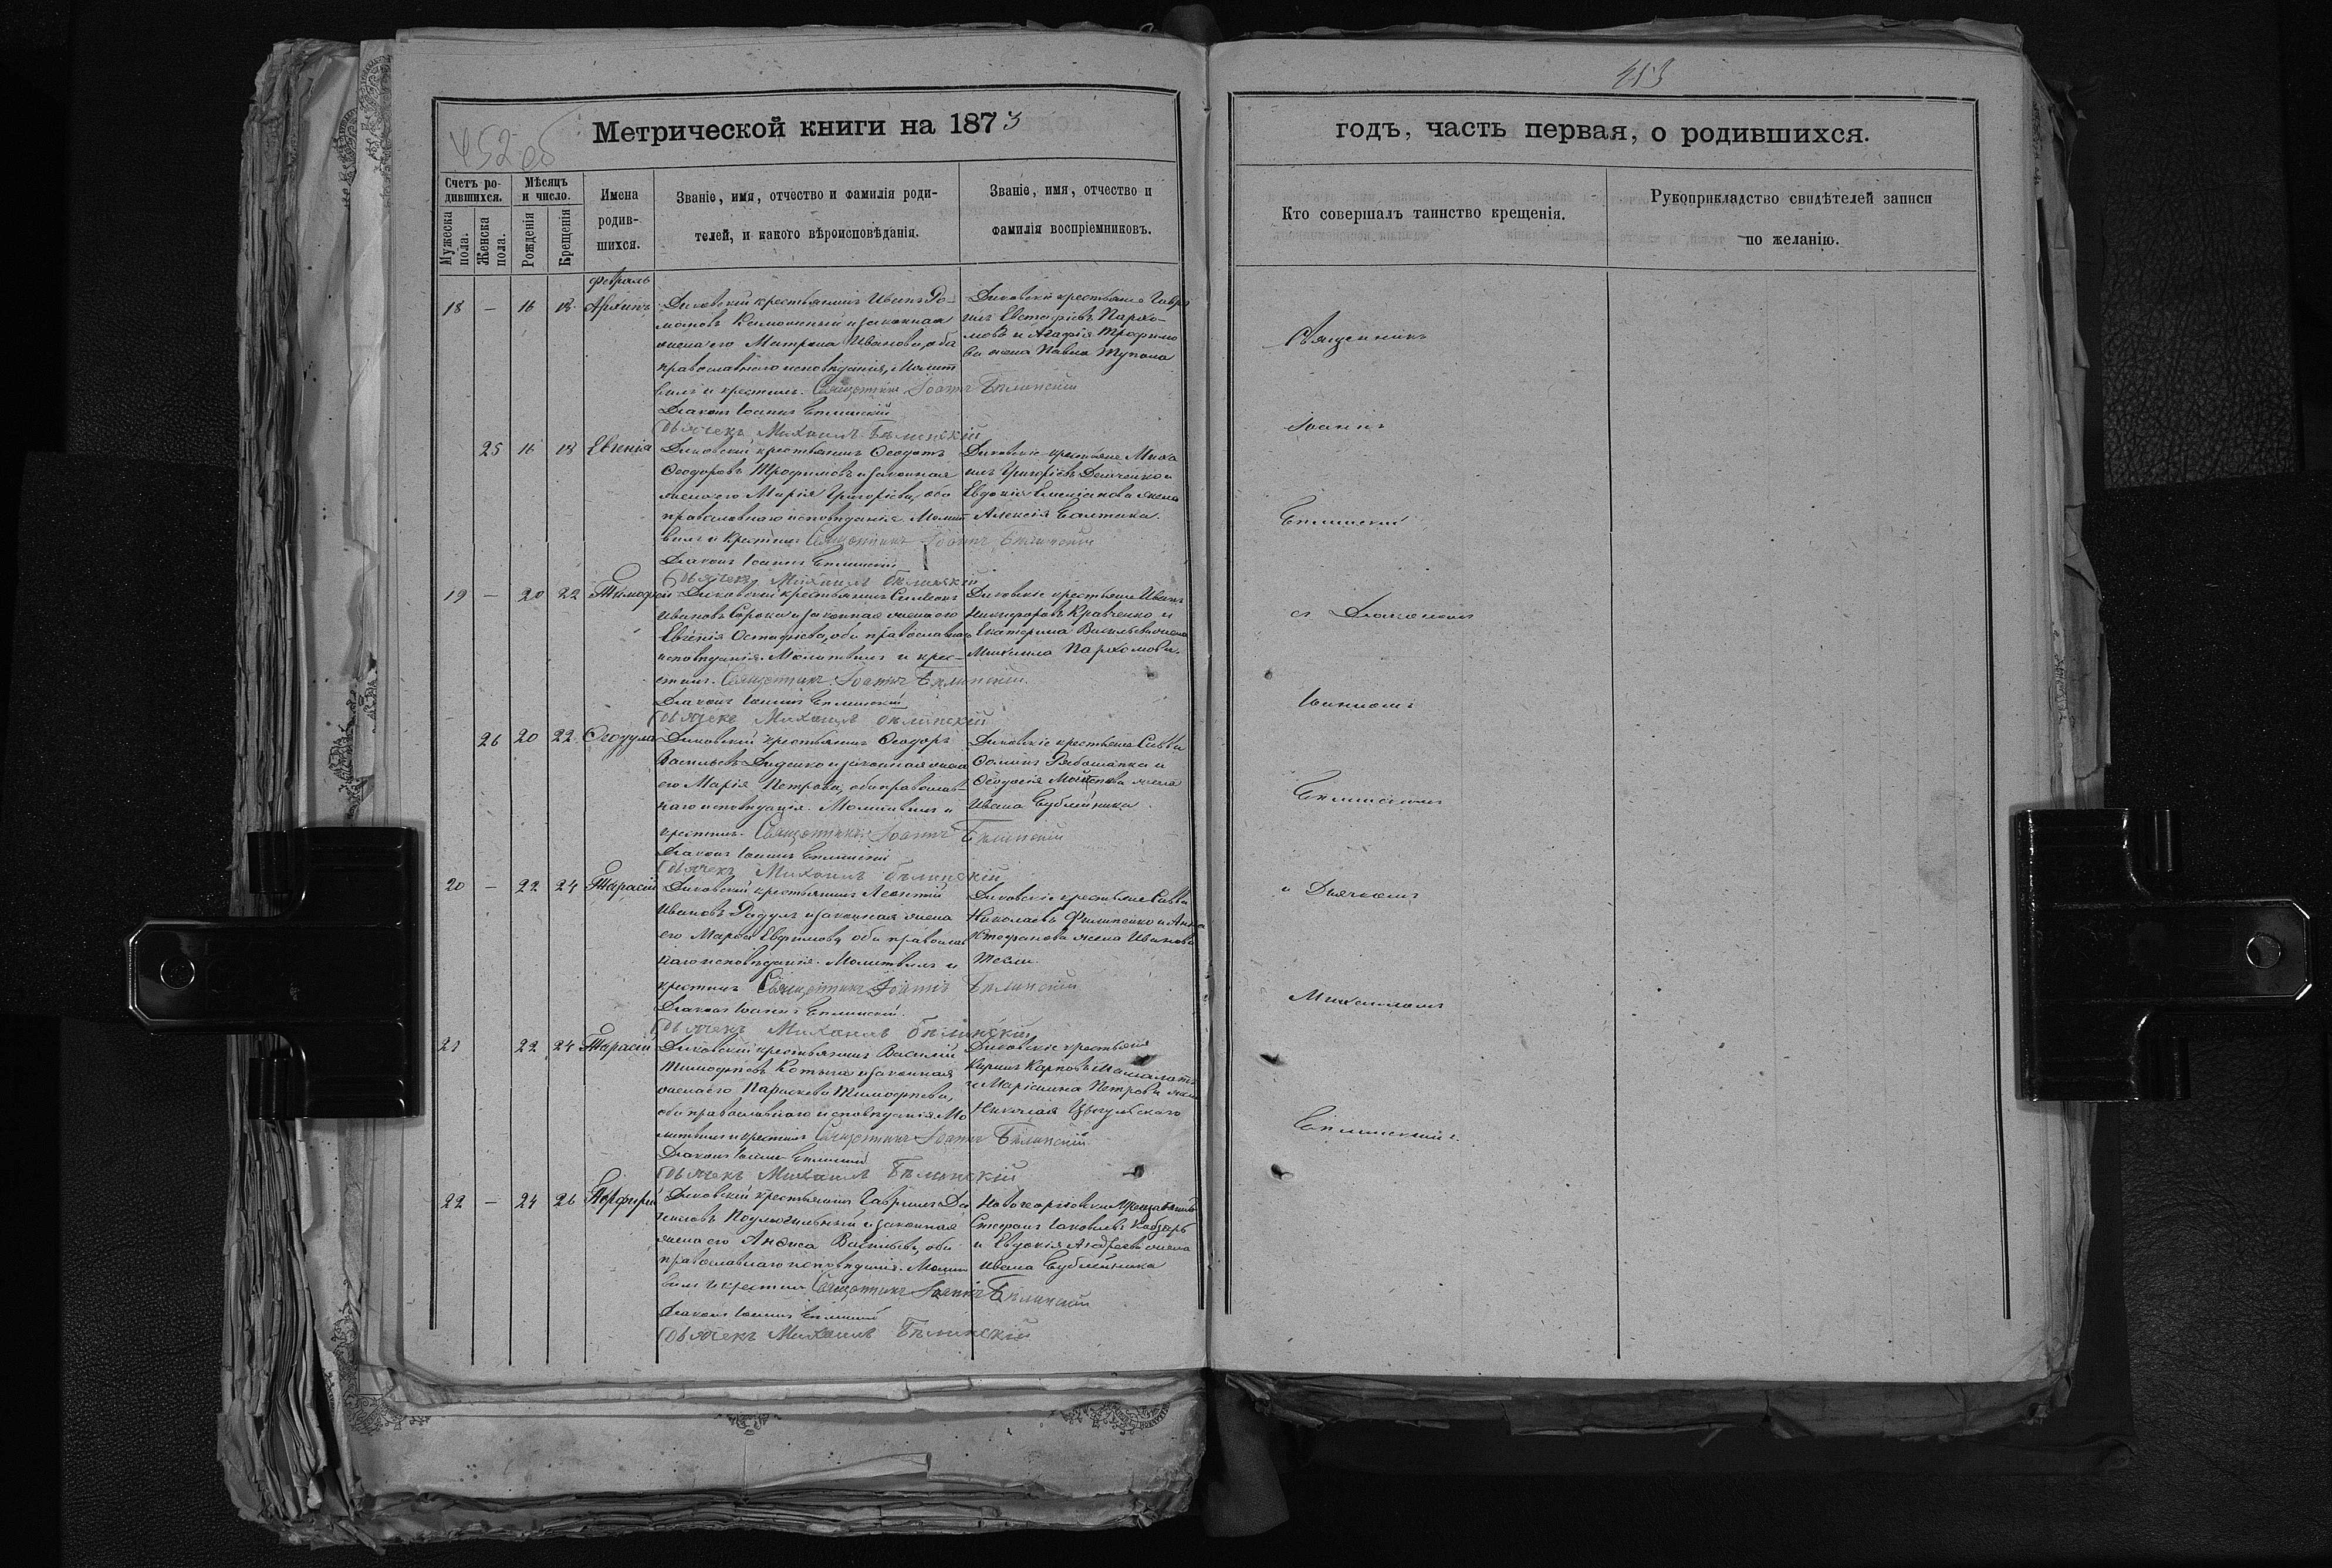 452 об
Метрической книги на 1873
Счетъ ро-
дившихся.
Мужеска
пола.
Женска
пола.
Мѣсяцъ
и число.
Рожденія
Крещенія
Имена
родив-
шихся.
Званіе, имя, отчество и фамилія роди-
телей, и какого вѣроисповѣданія.
Званіе, имя, отчество и
фамилія воспріемниковъ.
Февраль
18 — 16 18
Диковскій крестьянинъ Иванъ Ро-
мановъ и законная
жена его Матрона Иванова, оба
православнаго исповѣданія, Молит
вилъ и крестилъ. Священникъ Іоаннъ Бѣлинскій
Діаконъ Іоаннъ Бѣлинскій
Дьячекъ Михаилъ Бѣлинскій
Диковскіе крестьяне Гаври
илъ Евстафіевъ Пархо-
мовъ и Агафія Трофимо
ва жена Павла
25 16 18 Евгенія
Диковскій крестьянинъ Ѳеодотъ
Ѳеодоровъ Трофимовъ и законная
жена его Марія Григоріева, оба
православнаго исповѣданія. Молит
вилъ и крестилъ Священникъ Іоаннъ Бѣлинскій
Діаконъ Іоаннъ Бѣлинскій
Дьячекъ Михаилъ Бѣлинскій
Диковскіе крестьяне Миха
илъ Григоріевъ и
Евдокія жена
Алексія
19 — 20 22 Тимофей
Диковскій крестьянинъ Симеонъ
Ивановъ Сорока и законная жена его
Евгенія Остафіева, оба православнаго
исповѣданія. Молитвилъ и крес-
тилъ. Священникъ Іоаннъ Бѣлинскій
Діаконъ Іоаннъ Бѣлинскій
Дьячекъ Михаилъ Бѣлинскій
Диковскіе крестьяне Иванъ
Никифоровъ Кравченко и
Екатерина Васильева жена
Михаила Пархомова.
26 20 22 Ѳеодула
Диковскій крестьянинъ Ѳеодоръ
Васильевъ Диденко и законная жена
его Марія Петрова, оба православ-
наго исповѣданія. Молитвилъ и
крестилъ. Священникъ Іоаннъ Бѣлинскій
Діаконъ Іоаннъ Бѣлинскій
Дьячекъ Михаилъ Бѣлинскій
Диковскіе крестьяне Савва
Рябошапка и
Ѳеодосія жена
Ивана Бублейника
20 — 22 24 Тарасій
Диковскій крестьянинъ Леонтій
Ивановъ Радулъ и законная жена
его Марѳа Евфимова, оба православ
наго исповѣданія. Молитвилъ и
крестилъ Священникъ Іоаннъ Бѣлинскій
Діаконъ Іоаннъ Бѣлинскій.
Дьячекъ Михаилъ Бѣлинскій
Диковскіе крестьяне Савва
Николаевъ Филипенко и Анна
Стефанова жена Иванова
21 22 24 Тарасій
Диковскій крестьянинъ Василій
Тимофѣевъ и законная
жена его Параскева Тимофѣева,
оба православнаго исповѣданія Мо
литвилъ и крестилъ Священникъ Іоаннъ Бѣлинскій
Діаконъ Іоаннъ Бѣлинскій
Дьячекъ Михаилъ Бѣлинскій
Диковскіе крестьяне
Карповъ
и Маріамна Петрова жена
Николая
22 — 24 26 Порфирій
Диковскій крестьянинъ Гавріилъ
и законная
жена его Анѳиса Васильева, оба
православнаго исповѣданія. Молит
вилъ и крестилъ Священникъ Іоаннъ Бѣлинскій
Діаконъ Іоаннъ Бѣлинскій
Дьячекъ Михаилъ Бѣлинскій
Стефанъ Іаковлевъ Кобзарь
и Евдокія Андреева жена
Ивана Бублейника
453
годъ, часть первая, о родившихся.
Кто совершалъ таинство крещенія.
Рукоприкладство свидѣтелей записи
по желанію.
Священникъ
Іоаннъ
Бѣлинскій
съ Діакономъ
Іоанномъ
Бѣлинскимъ
и Дьячкомъ
Михаиломъ
Бѣлинскимъ.